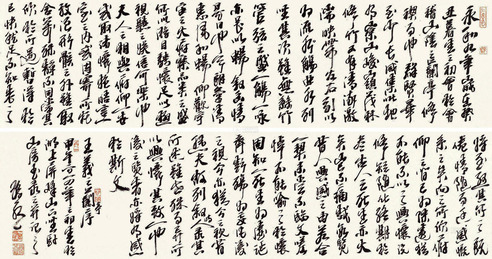 永和九年歲在癸
丑暮春之初會於會
稽山陰之蘭亭脩
禊事也羣賢畢
至少長咸集此地
有崇山峻領茂林
脩竹又有清流激
湍映帶左右引以
為流觴曲水列
坐其次雖無絲竹
管弦之盛一觴一詠
亦足以暢敘幽情
是日也天朗氣清
惠風和暢仰觀宇
宙之大俯察品類之盛
所以遊目騁懷足以極
視聽之娛信可樂也
夫人之相與俯仰一世
或取諸懷抱悟言一
室之內或因寄所託
放浪形骸之外雖趣
舍萬殊靜躁不同當其
欣於所遇暫得於己
快然自足不知老之
將至及其所之既
倦情隨事遷感慨
係之矣向之所欣俛
仰之間已為陳迹猶
不能不以之興懷況
脩短隨化終期於
盡古人云死生亦大
矣豈不痛哉每覽
昔人興感之由若合
一契未嘗不臨文嗟
悼不能喻之於懷
固知一死生為虛誕
齊彭殤為妄作後
之視今亦猶今之視昔
悲夫故列敘時人錄其
所述雖世殊事異所
以興懷其致一也
後之覽者亦將有感
於斯文
王羲之蘭亭序